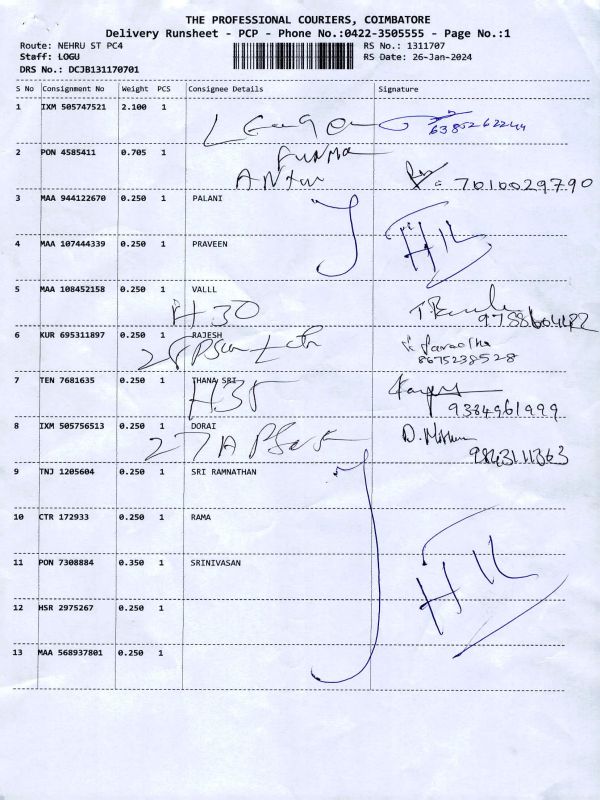 THE PROFESSIONAL COURIERS, COIMBATORE
Delivery Runsheet - PCP - Phone No.:0422-3505555 - Page No.:1
Route: NEHRU ST PC4 RS No.: 1311707
Staff: LOGU RS Date: 26-Jan-2024
DRS No.: DCJB131170701
S No Consignment No Weight PCS Consignee Details Signature
1 IXM 505747521 2.100 1
6385262244
2 PON 4585411 0.705 1
7010029790
3 MAA 944122670 0.250 1 PALANI
HIL
4 MAA 107444339 0.250 1 PRAVEEN
5 MAA 108452158 0.250 1 VALLL
H30
6 KUR 695311897 0.250 1 RAJESH
8675238528
7 TEN 7681635 0.250 1 THANA SRI
H35
9384961999
8 IXM 505756513 0.250 1 DORAI
27A
9843111363
9 TNJ 1205604 0.250 1 SRI RAMNATHAN
10 CTR 172933 0.250 1 RAMA
11 PON 7308884 0.350 1 SRINIVASAN
HIL
12 HSR 2975267 0.250 1
13 MAA 568937801 0.250 1